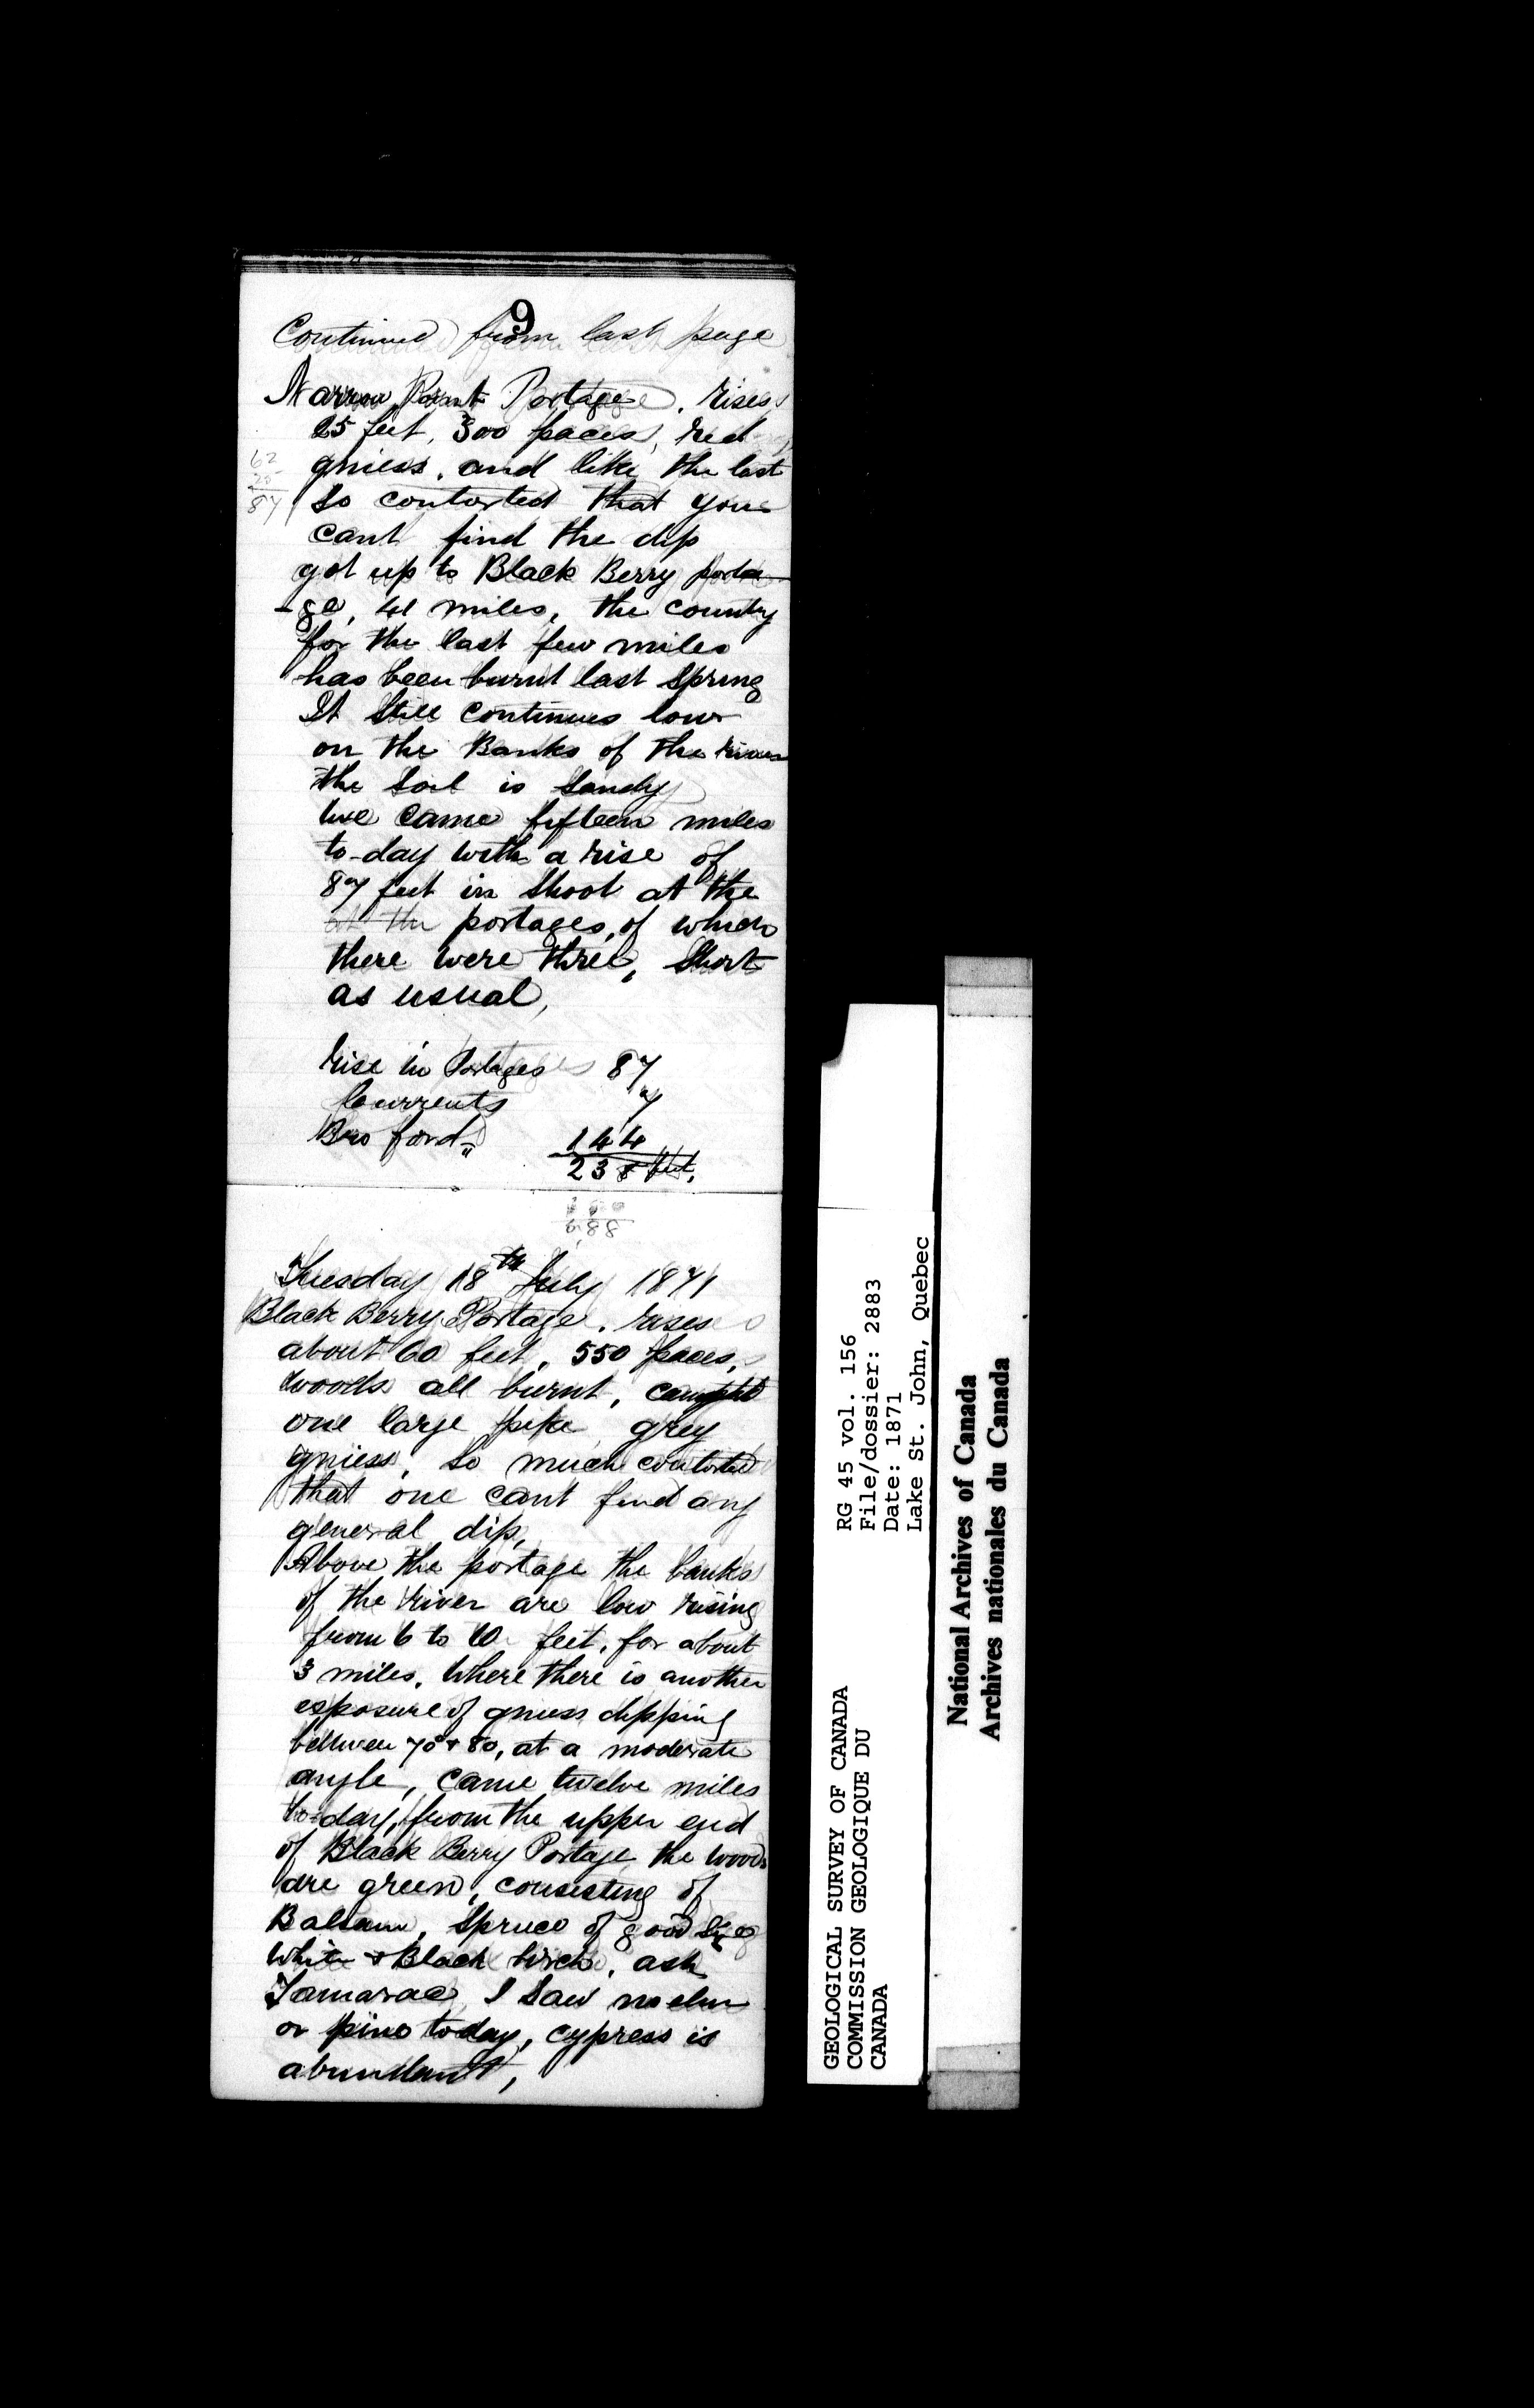 9
Continued from last page
Narrow Point Portage. rises
25 feet, 300 paces, red
gniess, and like the last
so contorted that you
cant find the dip
got up to Black Berry porta
-ge, miles, the country
for the last few miles
has been burnt last spring
It still continues low
on the Banks of the river
the soil is sandy
we came fifteen miles
to-day with a rise of
87 feet in Shoot at the
at the portages, of which
there were three, short
as usual,
62
25
87
rise in Portages 87
Currents 7
Bro ford. 144
238 feet.
Tuesday 18th July 1871
Black Berry Portage. rises
about 60 feet, 550 paces,
woods all burnt, caught
one large pike grey
gniess, so much contorted
that one cant find any
general dip,
Above the portage the banks
of the river are low rising
from 6 to 10 feet, for about
3 miles. Where there is another
exposure of gniess dipping
between 70 & 80, at a moderate
angle, came twelve miles
to-day, from the upper end
of Black Berry Portage the woods
are green, consisting of
Balsam, Spruce of good size
White & Black birch, ash
Tamarac, I saw no elm
or pine today, cypress is
abundant,
GEOLOGICAL SURVEY OF CANADA
COMMISSION GEOLOGIQUE DU
CANADA
RG 45 vol. 156
File/dossier: 2883
Date: 1871
Lake St. John, Quebec
National Archives of Canada
Archives nationales du Canada